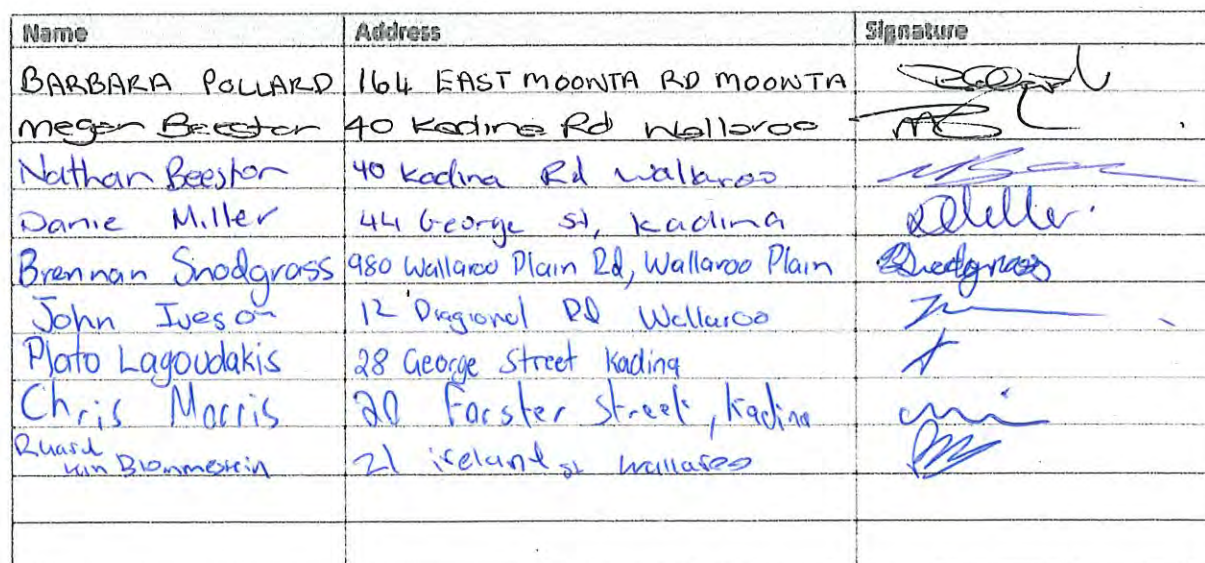 Name Address Signature
BARBARA POLLARD 164 EAST MOONTA RD MOONTA
Megan Beeston 40 Kadina Rd Wallaroo
Nathan Beeston 40 Kadina Rd Wallaroo
Danie Miller 44 George St, Kadina
Brennan Snodgrass 980 Wallaroo Plain Rd, Wallaroo Plain Snodgrass
John Iveson 12 Diagional Rd Wallaroo
Plato Lagoudakis 28 George Street Kadina
Chris Morris 20 Forster Street, Kadina
Ruard
van Blommestein 21 ireland st Wallaroo